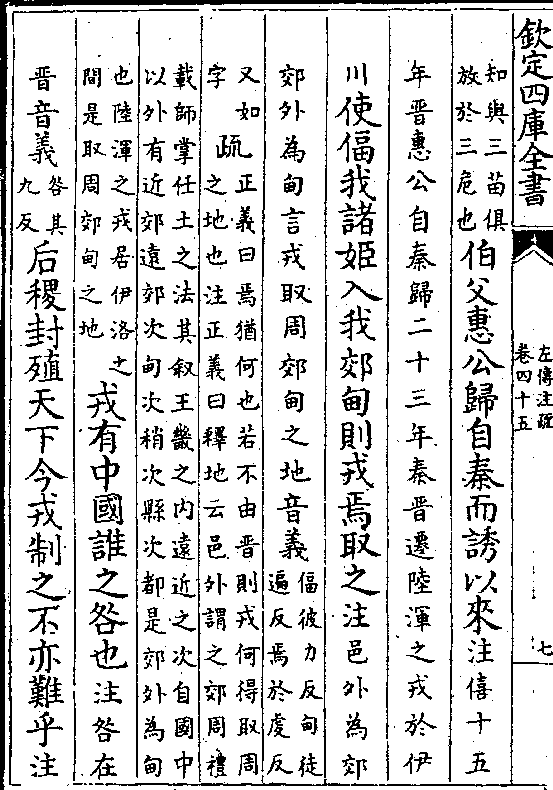 欽定四庫全書
左傳注疏
卷四十五
七
知與三苗俱
放於三危也
伯父惠公歸自秦而誘以來注僖十五
年晋惠公自秦歸二十三年秦晋遷陸渾之戎於伊
川使偪我諸姬入我郊甸則戎焉取之注邑外為郊
郊外為甸言戎取周郊甸之地音義
偪彼力反甸徒
遍反焉於虔反
又如
字
疏
正義曰焉猶何也若不由晋則戎何得取周
之地也注正義曰釋地云邑外謂之郊周禮
載師掌任土之法其叙王畿之内遠近之次自國中
以外有近郊遠郊次甸次稍次縣次都是郊外為甸
也陸渾之戎居伊洛之
間是取周郊甸之地
戎有中國誰之咎也注咎在
晋音義
咎其
九反
后稷封殖天下今戎制之不亦難乎注